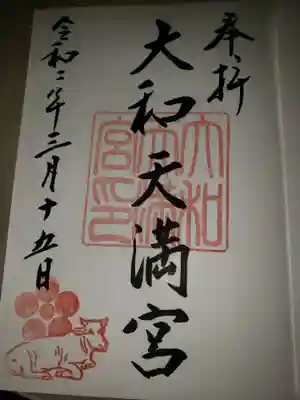 奉拝
大和天満宮
大和
天満
宮印
令和二年三月十五日